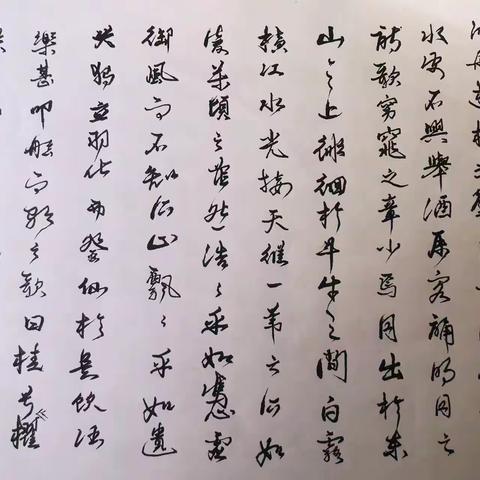 舟遊於
水波不興舉酒屬客誦明月之
詩歌窈窕之章少焉月出於東
山之上徘徊於斗牛之間白露
橫江水光接天縱一葦之所如
凌萬頃之茫然浩々乎如憑虛
御風而不知所止飄々乎如遺
世獨立羽化而登仙於是飲酒
樂甚叩舷而歌之歌曰桂兮櫂